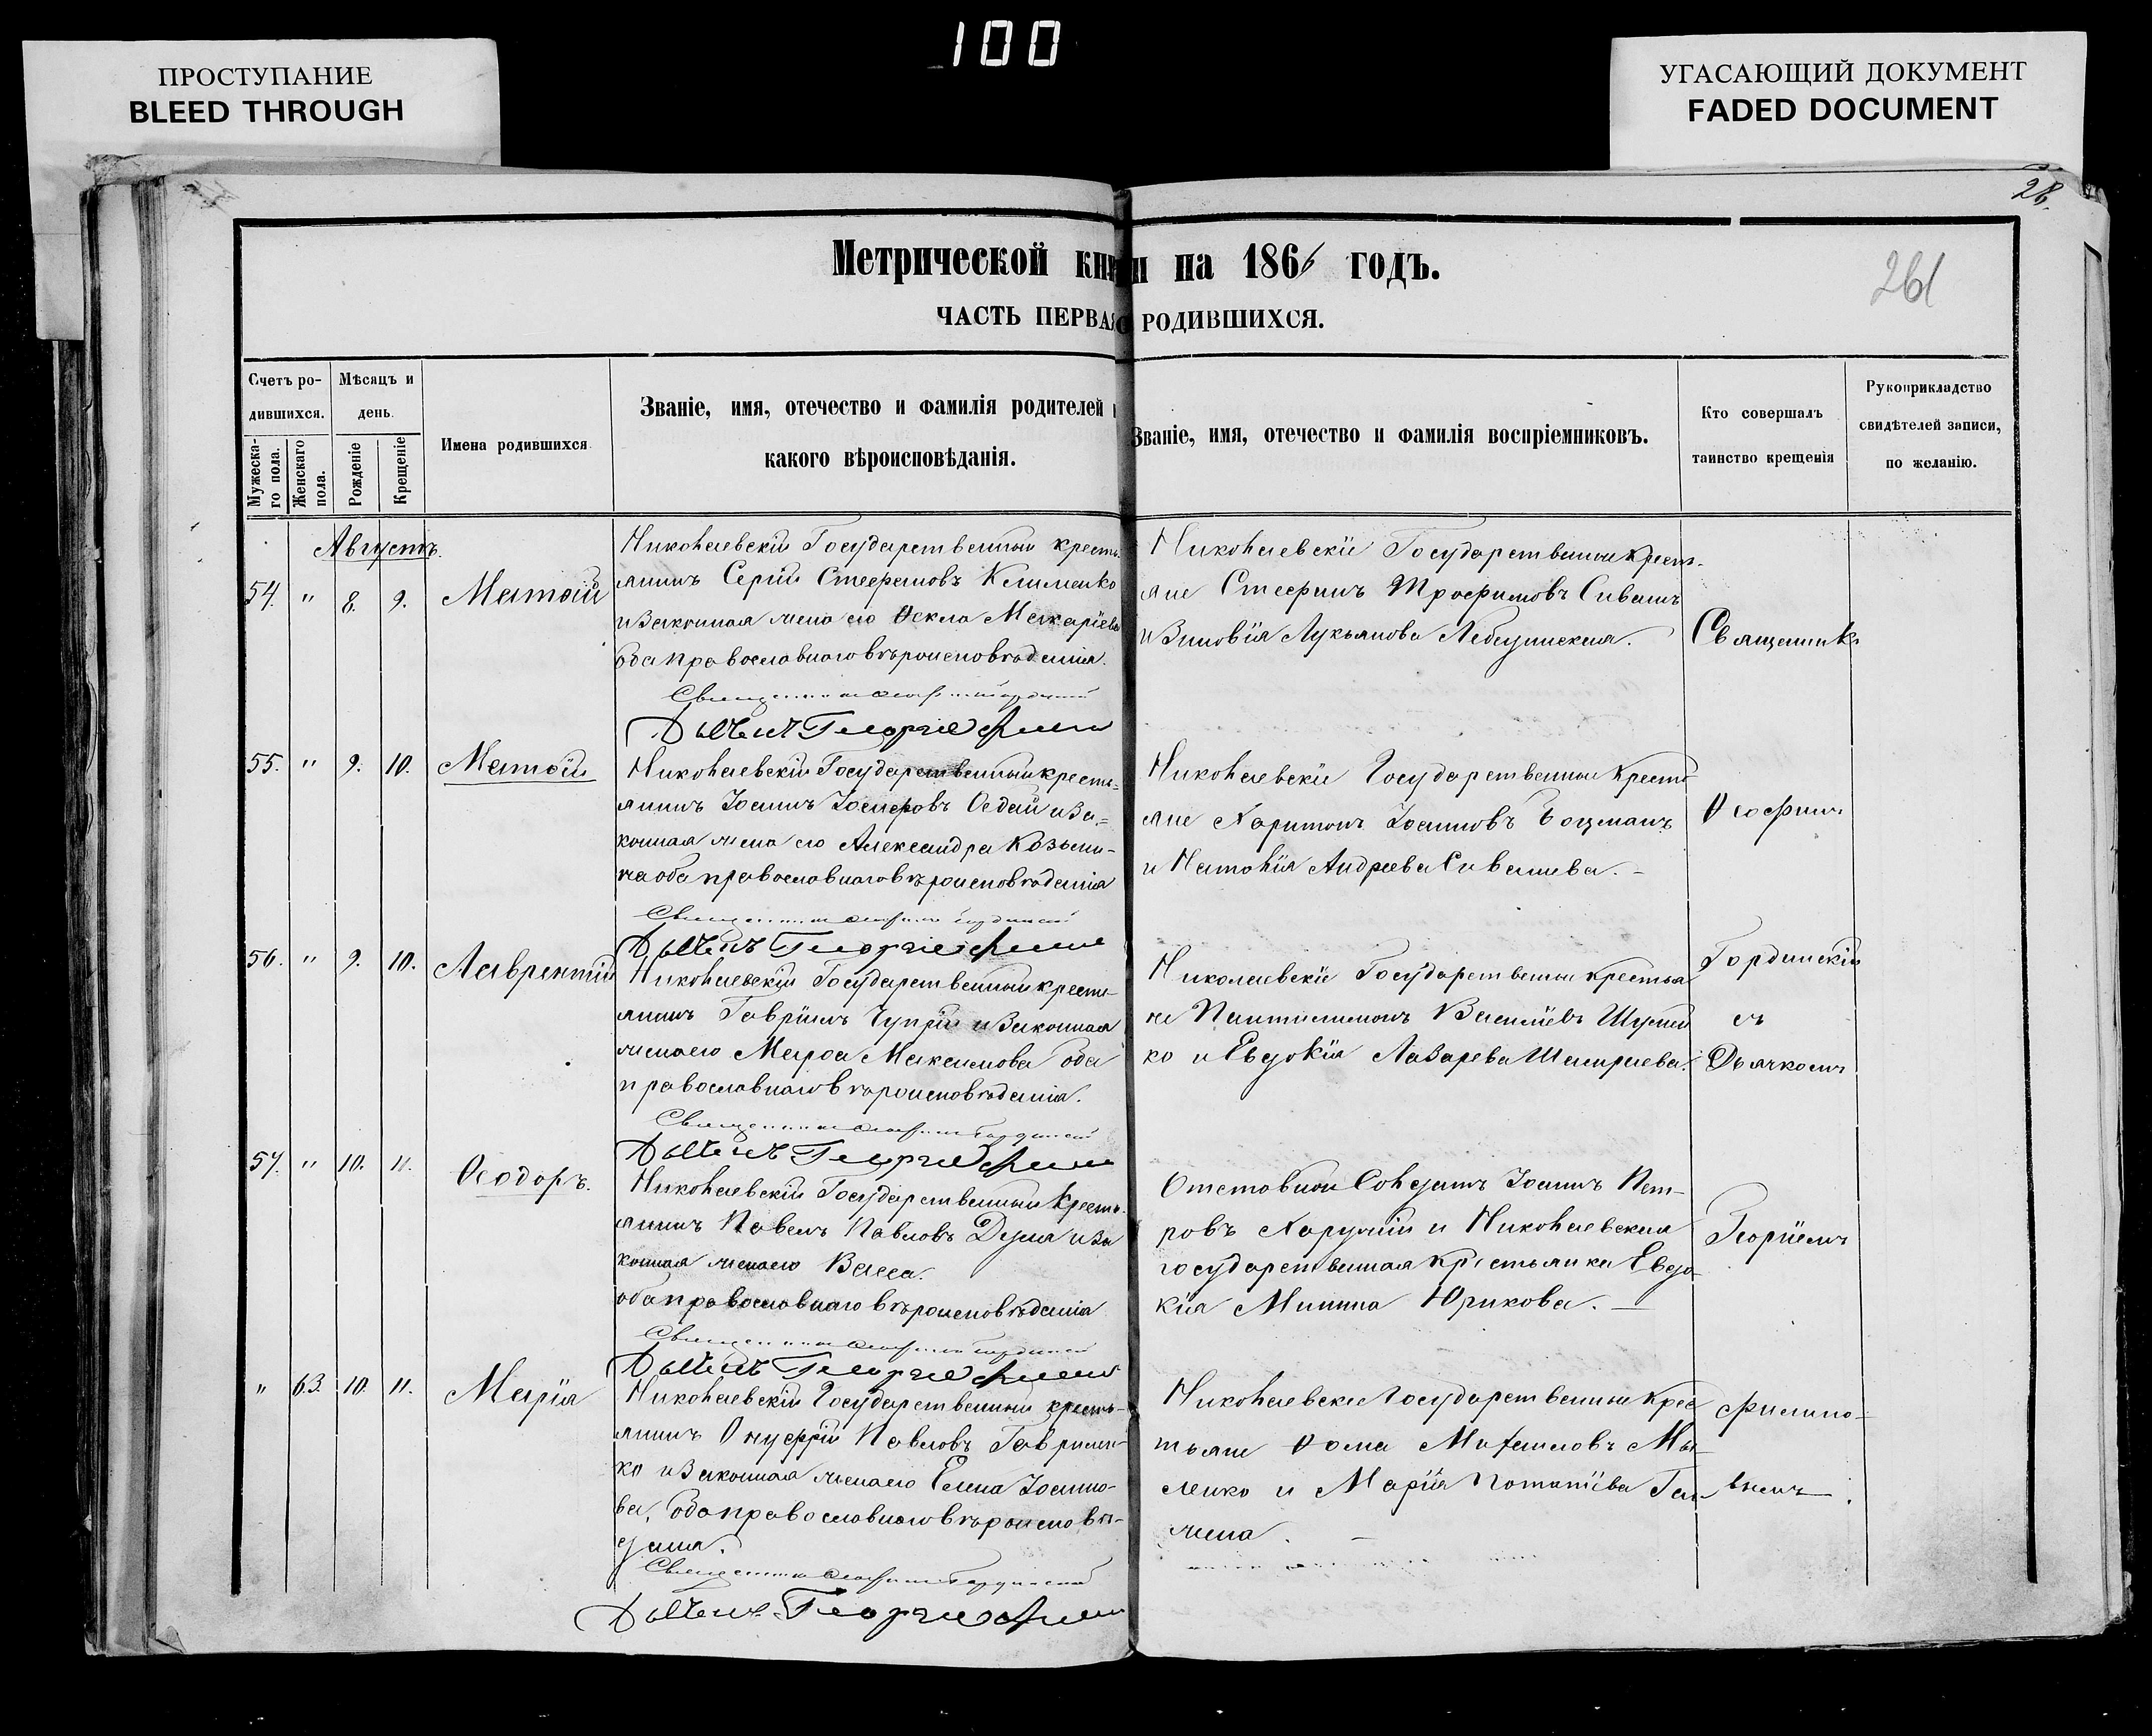 100
ПРОСТУПАНИЕ
BLEED THROUGH
УГАСАЮЩИЙ ДОКУМЕНТ
FADED DOCUMENT
28.
261
Метрической книги на 1866 годъ.
ЧАСТЬ ПЕРВАЯ О РОДИВШИХСЯ.
Счетъ ро-
дившихся.
Мужеска-
го пола.
Женскаго
пола.
Мѣсяцъ и
день.
Рожденіе
Крещеніе
Имена родившихся
Званіе, имя, отечество и фамилія родителей и
какого вѣроисповѣданія.
Званіе, имя, отечество и фамилія воспріемниковъ.
Кто совершалъ
таинство крещенія
Рукоприкладство
свидѣтелей записи,
по желанію.
Августъ.
54. " 8. 9. Матѳій
Николаевскій Государственный кресть-
янинъ Сергій Стефановъ Клименко
и законная жена его Ѳекла Макаріева
оба православнаго вѣроисповѣданія.
Николаевскіе Государственные кресть-
яне Стефанъ Трофимовъ Сивашъ
и Зиновія Лукьянова Лебединская.
Священникъ
55. " 9. 10. Матѳій
Николаевскій Государственный кресть-
янинъ Іоаннъ Іосифовъ и за-
конная жена его Александра Козьми-
на оба православнаго вѣроисповѣданія
Николаевскіе Государственные кресть-
яне Харитонъ Іоанновъ Боцманъ
и Наталія Андреева Сивашева.
Ѳеофилъ
56. " 9. 10. Лаврентій
Николаевскій Государственный кресть-
янинъ Гавріилъ Чупрій и законная
жена его Марѳа Максимова оба
православнаго вѣроисповѣданія.
Николаевскіе Государственные крестья
не Пантелимонъ Васильевъ
ко и Евдокія Лазарева
Гординскій
съ
Дьячкомъ
57. " 10. 11. Ѳеодоръ.
Николаевскій Государственный кресть-
янинъ Павелъ Павловъ Дума и за
конная жена его Васса.
оба православнаго вѣроисповѣданія
Отставной Солдатъ Іоаннъ Пет-
ровъ и Николаевская
государственная крестьянка Евдо-
кія Минина Юрикова.
Георгіемъ
" 63. 10. 11. Марія
Николаевскій Государственный кресть-
янинъ Онуфрій Павловъ Гаврилен-
ко и законная жена его Елена Іоанно-
ва, оба православнаго вѣроисповѣ-
данія.
Николаевскіе Государственные крес
тьяне Ѳома Михаиловъ
ленко и Марія Потапіева
жина.
Филипо-
вымъ.